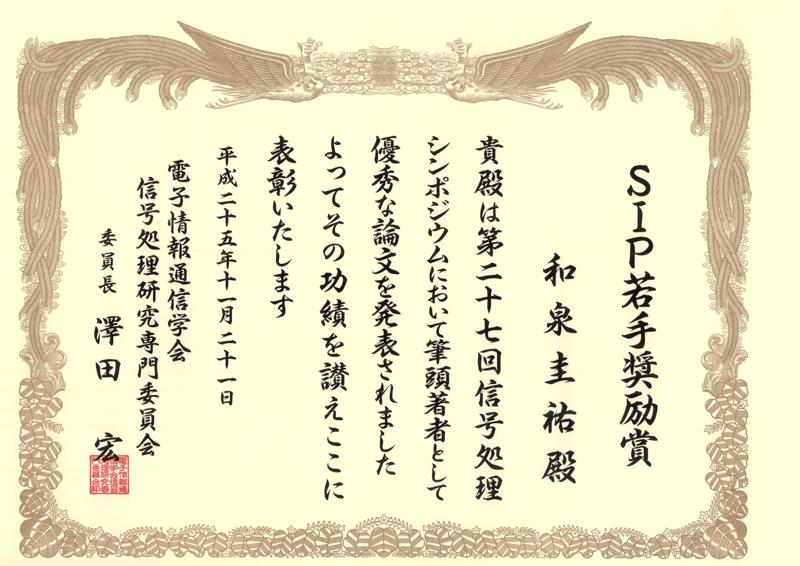 SIP若手奨励賞
和泉圭祐殿
貴殿は第二十七回信号処理
シンポジウムにおいて筆頭著者として
優秀な論文を発表されました
よってその功績を讃えここに
表彰いたします
平成二十五年十一月二十一日
電子情報通信学会
信号処理研究専門委員会
委員長 澤田 宏